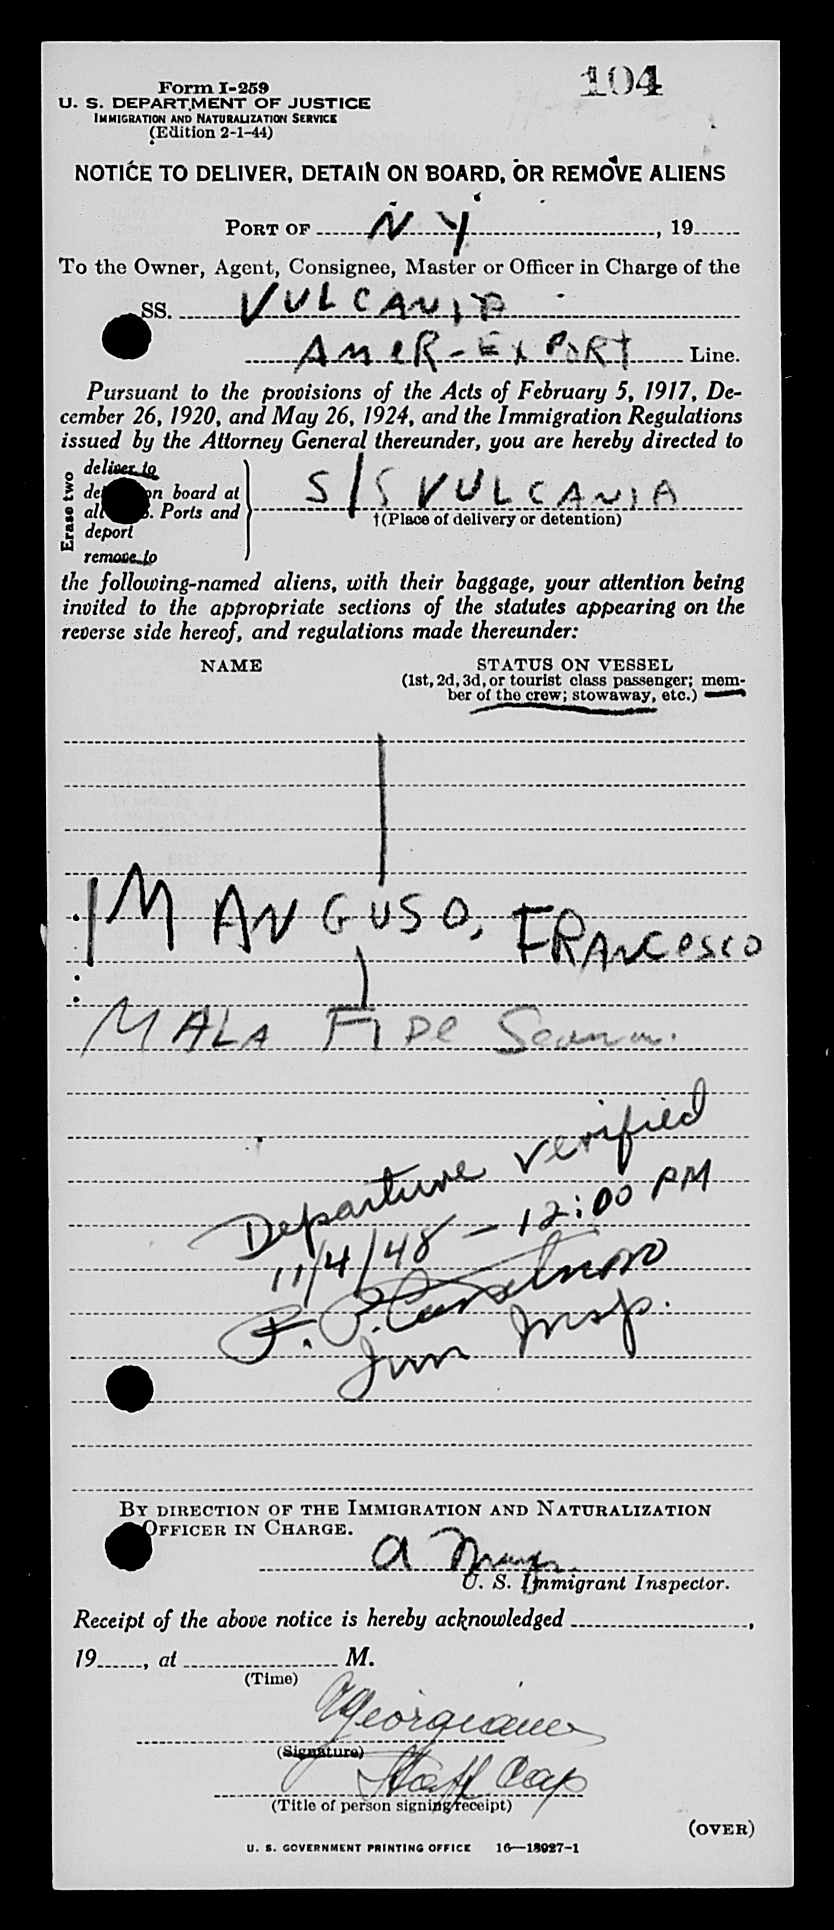 104
Form I-259
U. S. DEPARTMENT OF JUSTICE
IMMIGRATION AND NATURALIZATION SERVICE
(Edition 2-1-44)
NOTICE TO DELIVER, DETAIN ON BOARD, OR REMOVE ALIENS
PORT OF NY, 19
To the Owner, Agent, Consignee, Master or Officer in Charge of the
SS. VULCANIA
AMER-EXPORT Line.
Pursuant to the provisions of the Acts of February 5, 1917, De-
cember 26, 1920, and May 26, 1924, and the Immigration Regulations
issued by the Attorney General thereunder, you are hereby directed to
Erase two
deliver to
on board at
Ports and
deport
remove to
S/S VULCANIA
†(Place of delivery or detention)
the following-named aliens, with their baggage, your attention being
invited to the appropriate sections of the statutes appearing on the
reverse side hereof, and regulations made thereunder:
NAME STATUS ON VESSEL
(1st, 2d, 3d, or tourist class passenger; mem-
ber of the crew; stowaway, etc.)
MANGUSO, FRANCESCO
MALA FIDE Seaman.
Departure verified
11/4/48 - 12:00 PM
Imm Insp.
BY DIRECTION OF THE IMMIGRATION AND NATURALIZATION
OFFICER IN CHARGE.
U. S. Immigrant Inspector.
Receipt of the above notice is hereby acknowledged ,
19 , at M.
(Time)
(Signature)
Staff Cap
(Title of person signing receipt)
(OVER)
U. S. GOVERNMENT PRINTING OFFICE 16—18927-1